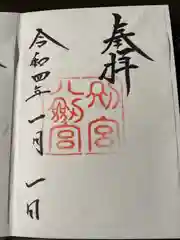 奉拝
別宮
八剱宮
令和四年一月一日